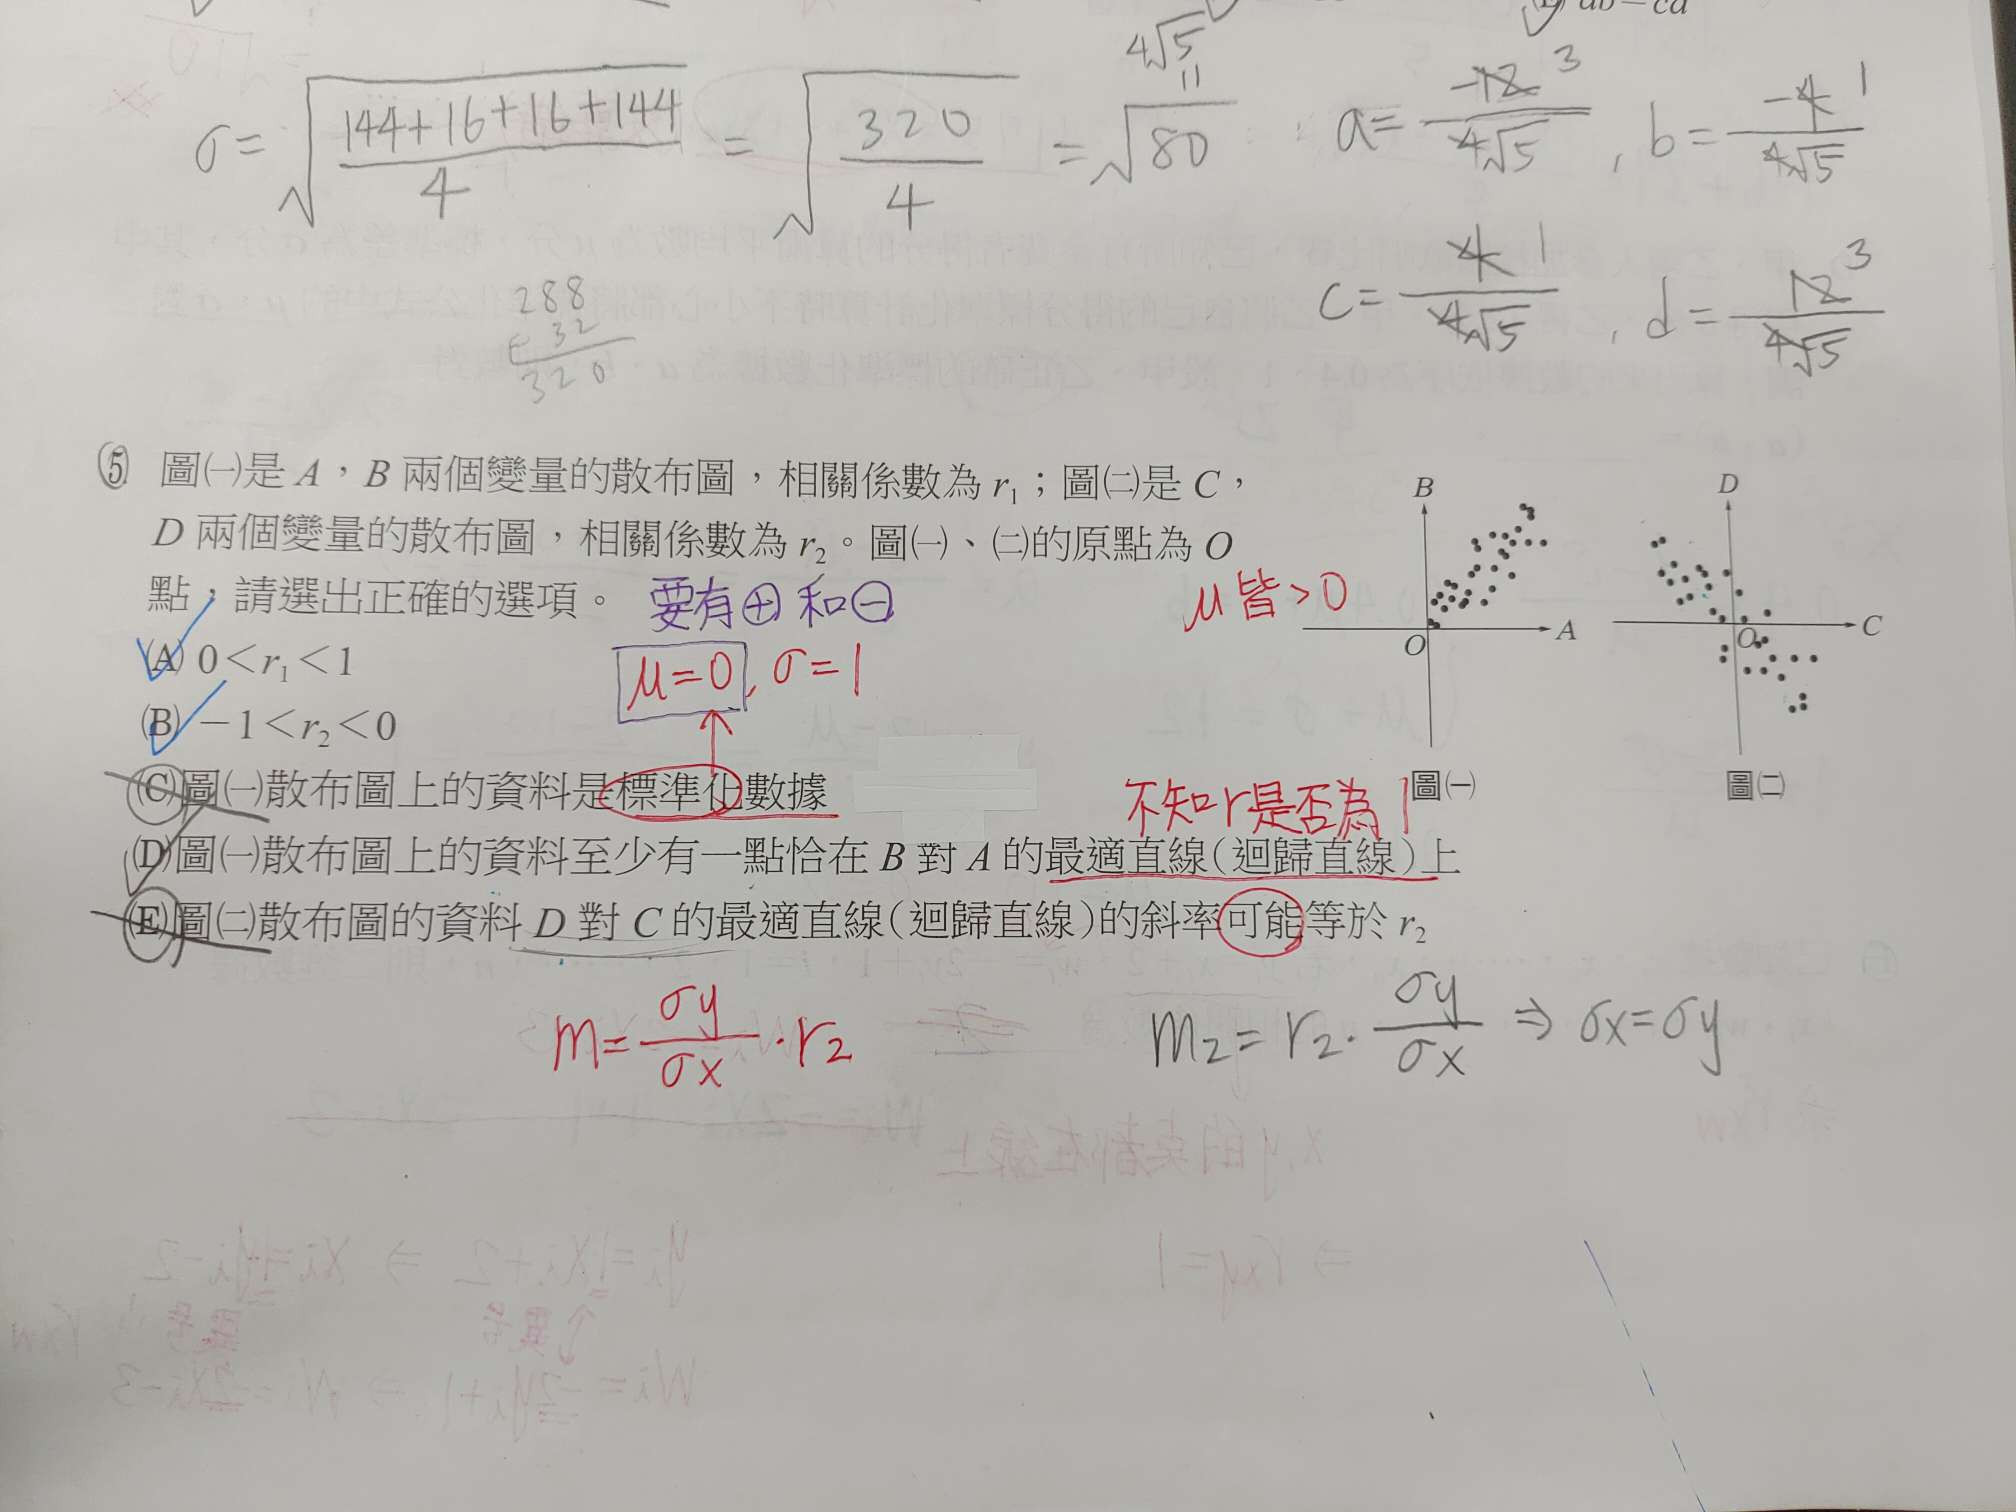 ab－cd
σ = √(144+16+16+144 / 4) = √(320 / 4) = √80 = 4√5
a = -12 3 / 4√5 , b = -4 1 / 4√5
c = 4 1 / 4√5 , d = 12 3 / 4√5
288
+ 32
320
⑤ 圖㈠是 A，B 兩個變量的散布圖，相關係數為 r₁；圖㈡是 C，
D 兩個變量的散布圖，相關係數為 r₂。圖㈠、㈡的原點為 O
點，請選出正確的選項。
要有⊕和⊖
μ皆>0
(A) 0＜r₁＜1
μ=0, σ=1
(B) －1＜r₂＜0
(C)圖㈠散布圖上的資料是標準化數據
不知r是否為1
(D)圖㈠散布圖上的資料至少有一點恰在 B 對 A 的最適直線(迴歸直線)上
(E)圖㈡散布圖的資料 D 對 C 的最適直線(迴歸直線)的斜率可能等於 r₂
B
A
O
圖㈠
D
C
O
圖㈡
m = σy / σx · r₂
m₂ = r₂ · σy / σx ⇒ σx = σy